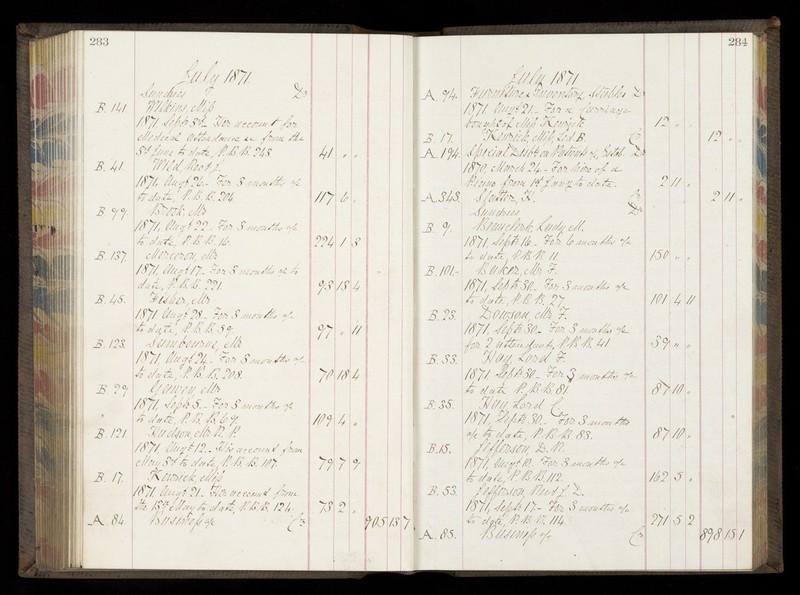 283
July 1871
Sundries Dr
B. 141 Wilkins, Miss
1871 Septr 3d - Her account for
Medical attendance &c from the
3d June to date, P.B.B. 243 41 " "
B. 41 Wild, Revd J.
1871 Augt 26 - For 3 months a/c
to date, P.B.B. 204 117 6 "
B. 99 Brook, Mr
1871, Augt 22 - For 3 months a/c
to date, P.B.B. 16. 224 1 3
B. 137 Merceron, Mr
1871 Augt 17 - For 3 months a/c to
date, P.B.B. 221 93 18 4
B. 45. Fisher, Mr
1871 Augt 28 - For 3 months a/c
to date, P.B.B. 59 97 " 11
B. 123. Mr
1871 Augt 24 - For 3 months a/c
to date, P.B.B. 208 70 18 4
B. 29 Mr
1871, Septr 5. - For 3 months a/c
" to date, P.B.B. 69 109 4 "
B. 121 Hudson, Mr R. P.
1871 Augt 12 - His account from
May 3d to date, P.B.B. 107 79 7 9
B. 17. Kenrick, Miss
1871 Augt 21 - Her account from
the 15th May to date, P.B.B. 124. 73 2 "
A. 84. Business a/c Cr 905 18 7
284
July 1871
A. 94. Furniture & Inventory, Stables Dr
1871 Augt 21 - For a Carriage
bought of Miss Kenrick 12 " "
B. 17. Kenrick, Miss, Cr 12 " "
A. 194. Special on Patients a/c, Estab. Dr
1870, March 24 - For hire of a
Piano from 1st Jany to date. 2 11 "
A. 343. Cr 2 11 "
Sundries Dr
B. 9. Beauclerk, Lady M.
1871, Septr 16. - For 6 months a/c
to date, P.B.B. 11 150 " "
B. 101 - Baker, Mr F.
1871, Septr 30. For 3 months a/c
to date, P.B.B. 27 101 4 11
B. 23. Dowson, Mr F.
1871 Septr 30 - For 3 months a/c
for 2 attendants, P.B.B. 41 39 " "
B. 33. Hay, Lord F.
1871 Septr 30 - For 3 months a/c
to date P.B.B. 81 87 10 "
B. 35. Hay, Lord C.
1871, Septr 30. - For 3 months
a/c to date, P.B.B. 83. 87 10 "
B. 15. Jefferson, D. N.
1871, Augt 10. For 3 months a/c
to date, P.B.B. 112 162 5 "
B. 53. Jefferson, Revd J. D.
1871, Septr 17 - For 3 months a/c
to date P.B.B. 114 271 5 2
A. 85. Business a/c Cr 898 15 1